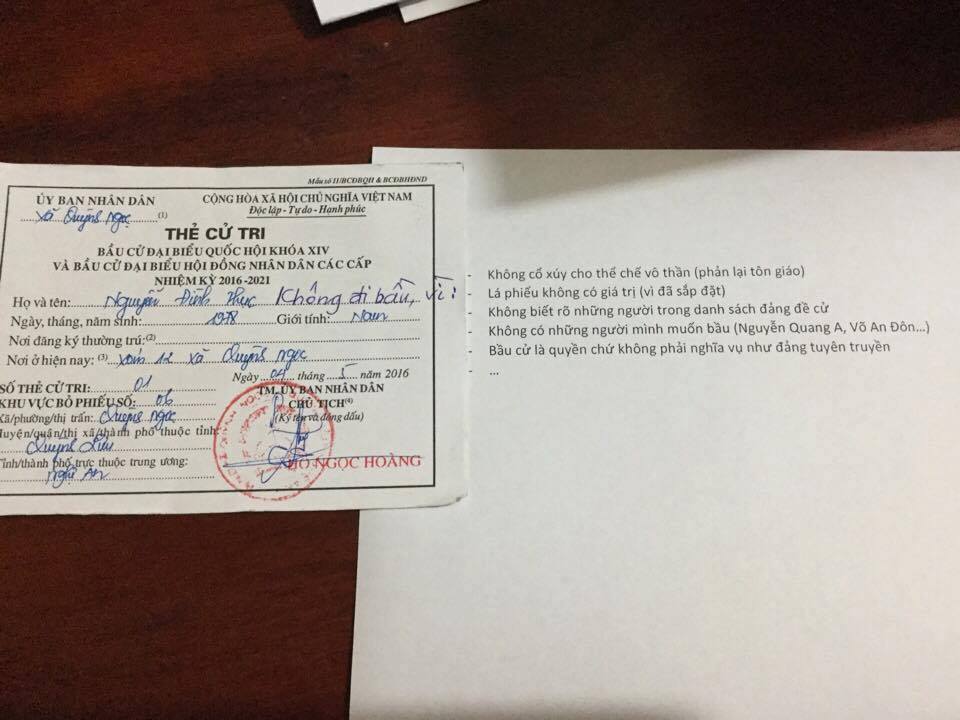 Mẫu số 11/BCĐBQH & BCĐBHĐND
ỦY BAN NHÂN DÂN
xã Quỳnh Ngọc (1)
CỘNG HÒA XÃ HỘI CHỦ NGHĨA VIỆT NAM
Độc lập - Tự do - Hạnh phúc
THẺ CỬ TRI
BẦU CỬ ĐẠI BIỂU QUỐC HỘI KHÓA XIV
VÀ BẦU CỬ ĐẠI BIỂU HỘI ĐỒNG NHÂN DÂN CÁC CẤP
NHIỆM KỲ 2016-2021
Họ và tên: Nguyễn Đình Thục Không đi bầu, vì:
Ngày, tháng, năm sinh: 1978 Giới tính: Nam
Nơi đăng ký thường trú:(2)
Nơi ở hiện nay: (3) xóm 12 xã Quỳnh Ngọc
Ngày 04 tháng 5 năm 2016
SỐ THẺ CỬ TRI: 01
KHU VỰC BỎ PHIẾU SỐ: 06
Xã/phường/thị trấn: Quỳnh Ngọc
Huyện/quận/thị xã/thành phố thuộc tỉnh:
Quỳnh Lưu
Tỉnh/thành phố trực thuộc trung ương:
Nghệ An
TM. ỦY BAN NHÂN DÂN
CHỦ TỊCH(4)
(Ký tên và đóng dấu)
HỒ NGỌC HOÀNG
- Không cổ xúy cho thể chế vô thần (phản lại tôn giáo)
- Lá phiếu không có giá trị (vì đã sắp đặt)
- Không biết rõ những người trong danh sách đảng đề cử
- Không có những người mình muốn bầu (Nguyễn Quang A, Võ An Đôn...)
- Bầu cử là quyền chứ không phải nghĩa vụ như đảng tuyên truyền
- ...